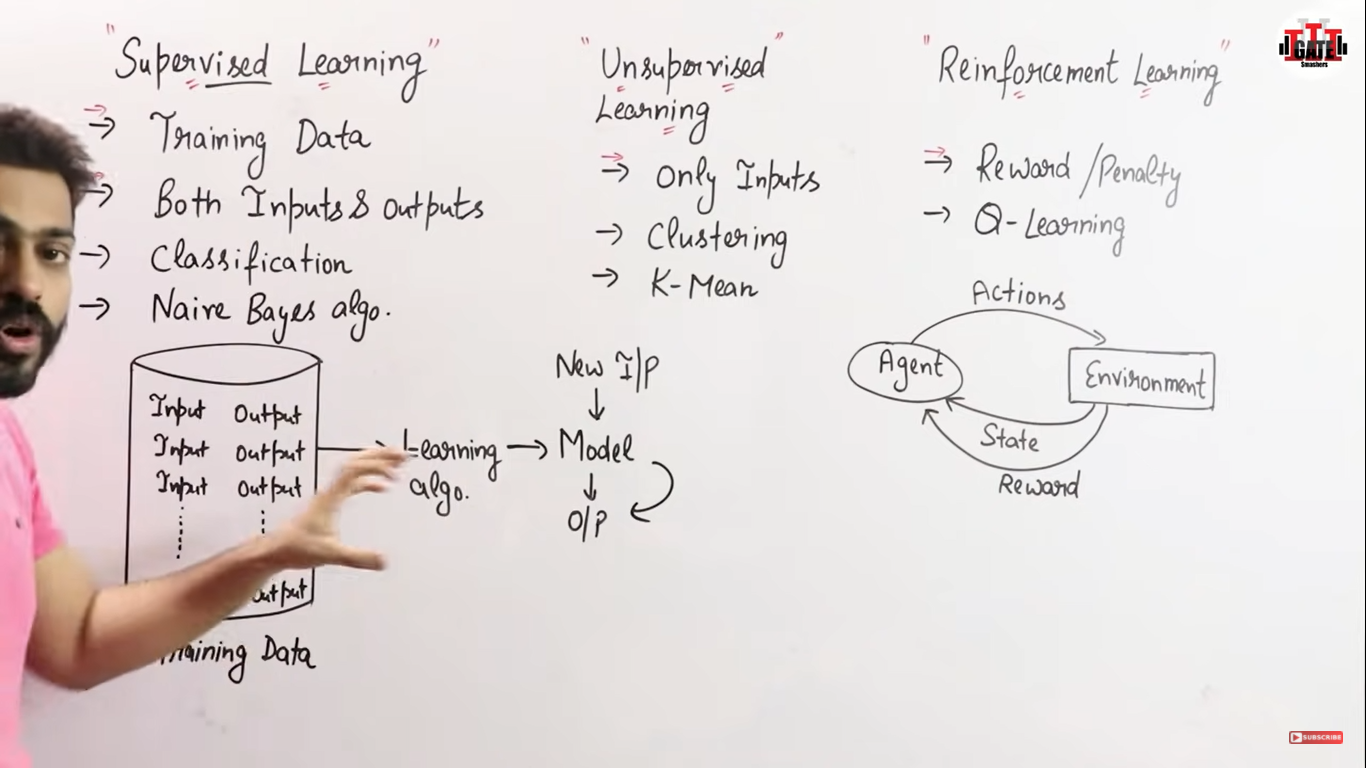 "Supervised Learning"
→ Training Data
→ Both Inputs & outputs
→ Classification
→ Naive Bayes algo.
Input Output
Input Output
Input Output
output
Training Data
Learning
algo.
New I/P
Model
O/P
"Unsupervised"
Learning
→ Only Inputs
→ Clustering
→ K-Mean
"Reinforcement Learning"
→ Reward/Penalty
→ Q-Learning
Actions
Agent
Environment
State
Reward
GATE
Smashers
SUBSCRIBE